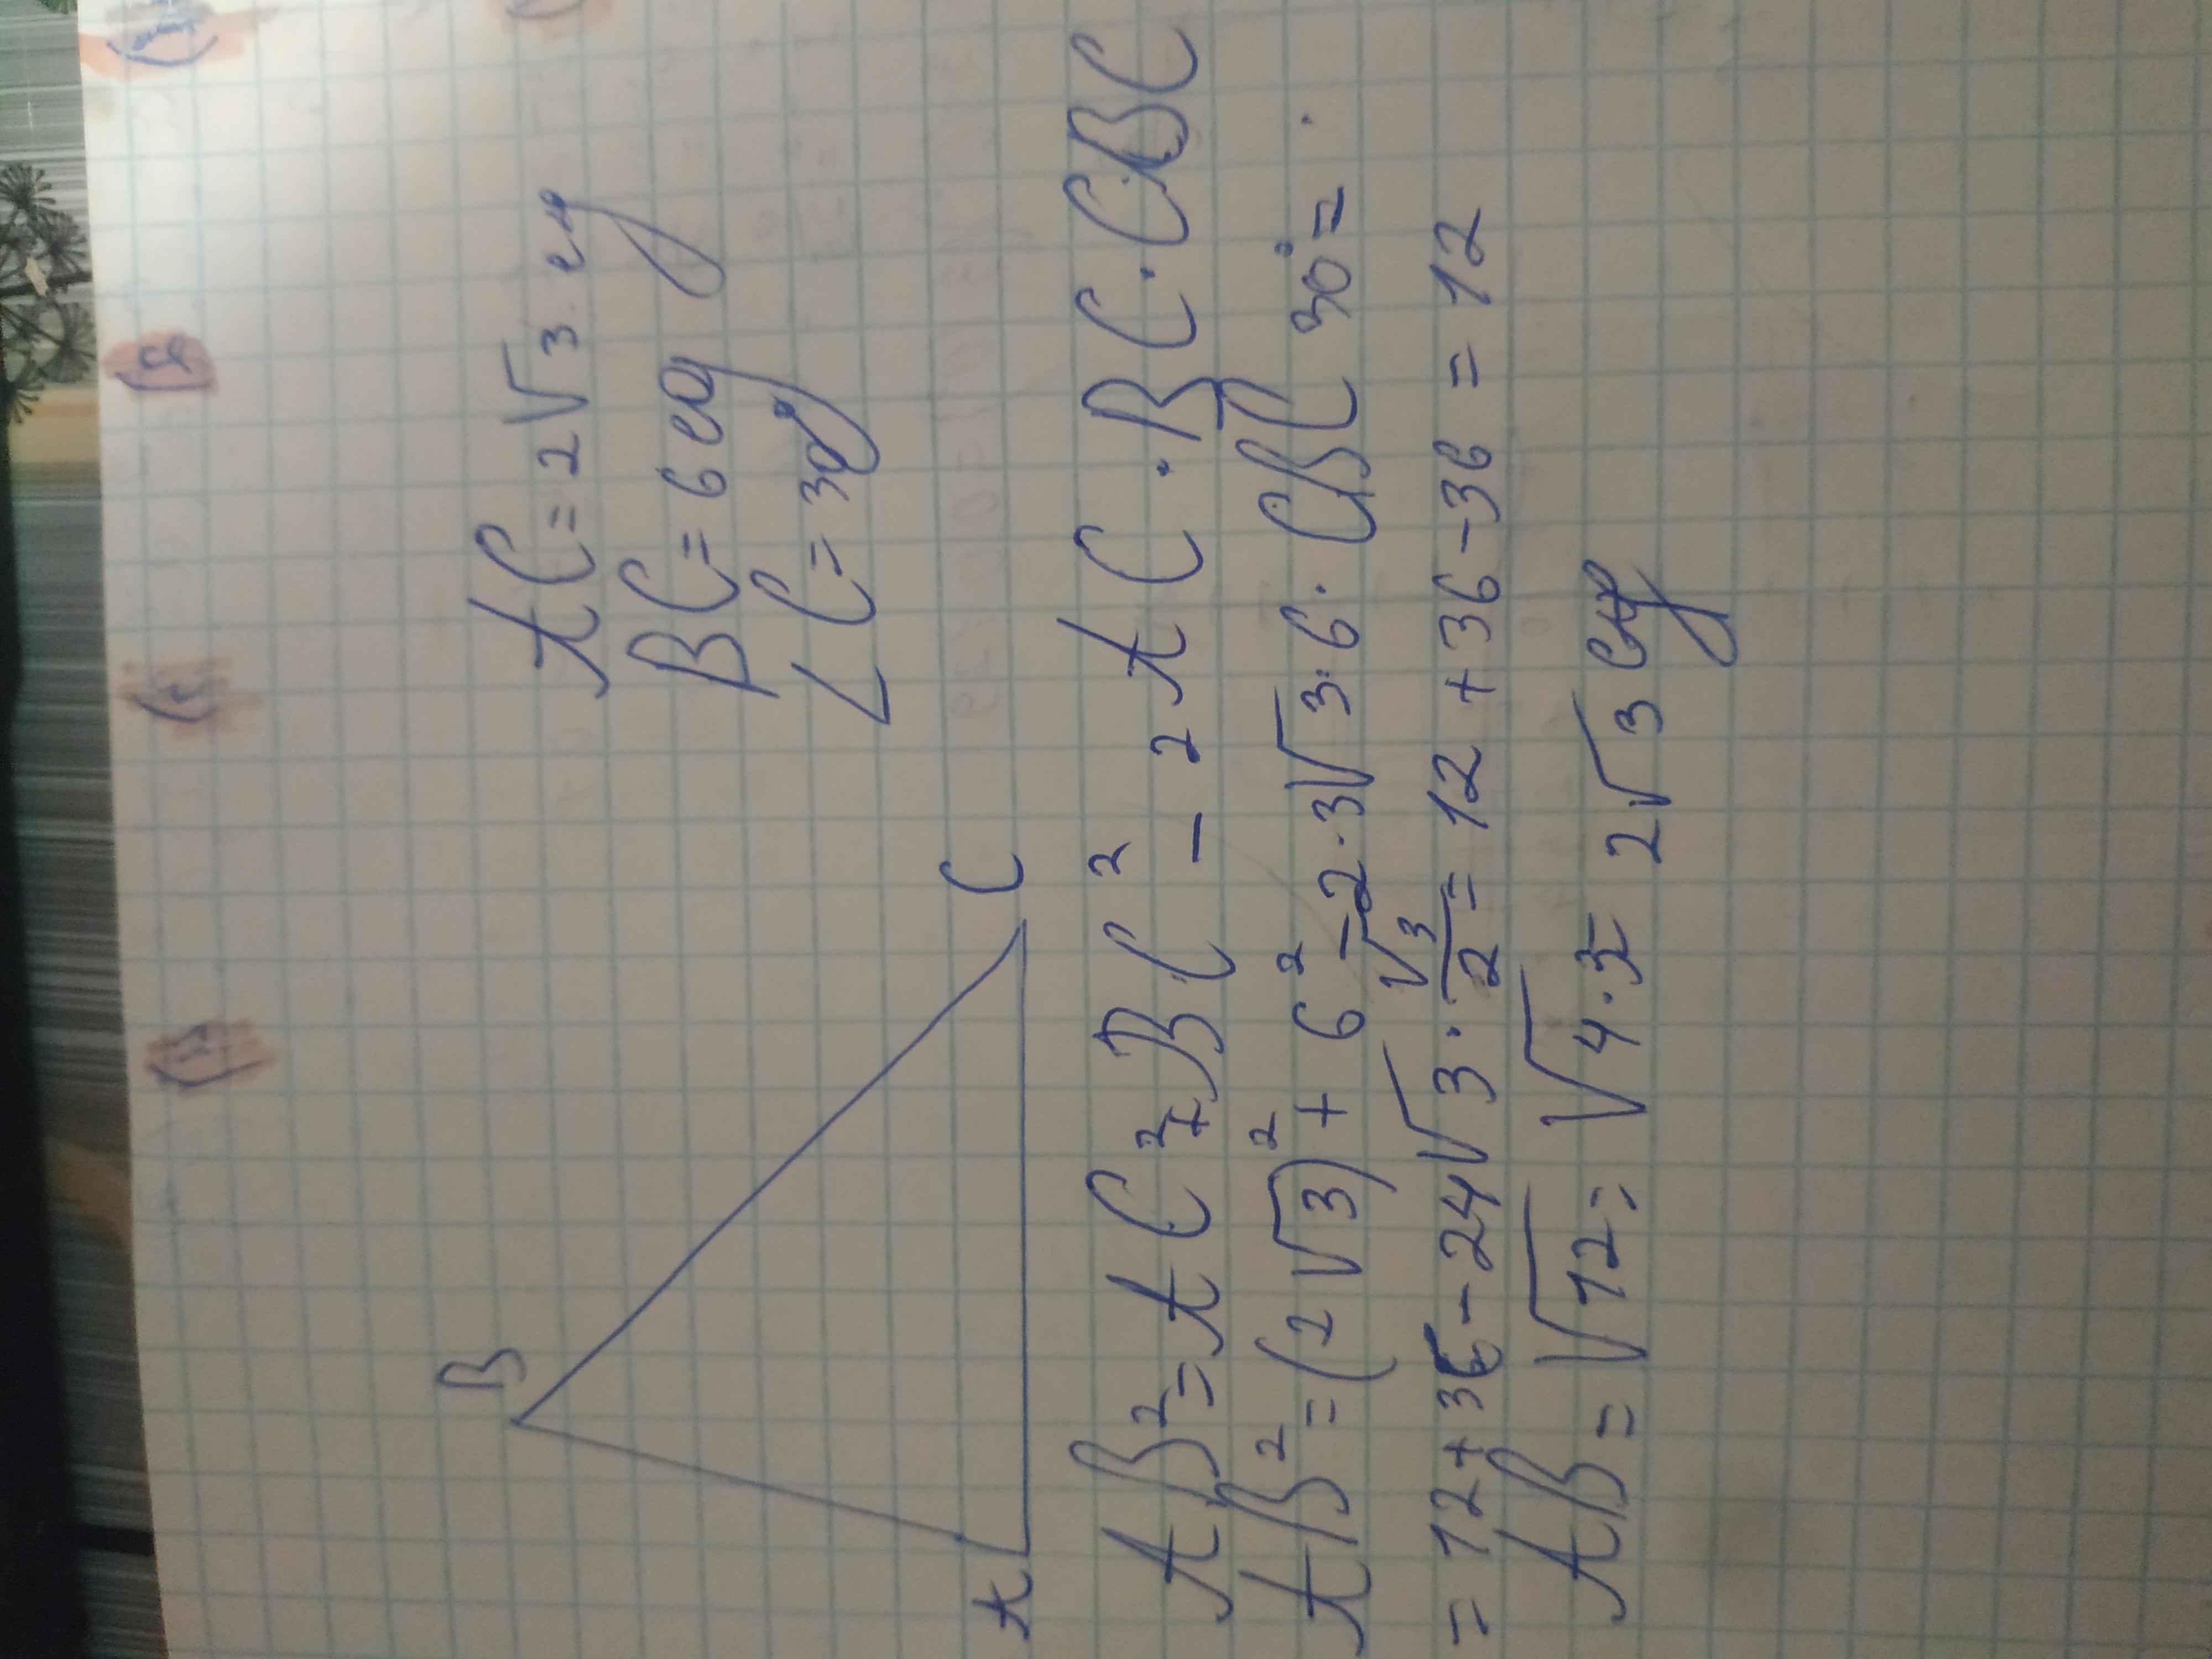 B
A
C
AC = 2√3 ед
BC = 6 ед
∠C = 30°
AB² = AC² + BC² - 2AC · BC ·
AB² = (2√3)² + 6² - 2 · 3√3 · 6 · 30° =
= 12 + 36 - 24√3 · √3/2 = 12 + 36 - 36 = 12
AB = √12 = √4·3 = 2√3 ед